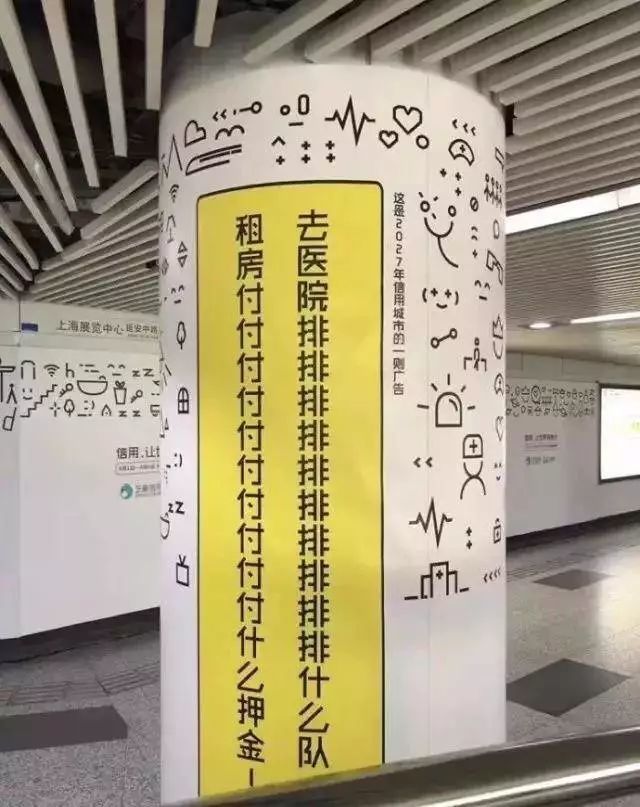 这是2027年信用城市的一则广告
去医院排排排排排排排排排排什么队
租房付付付付付付付付付付什么押金
上海展览中心 延安中路
信用,让
芝麻信用